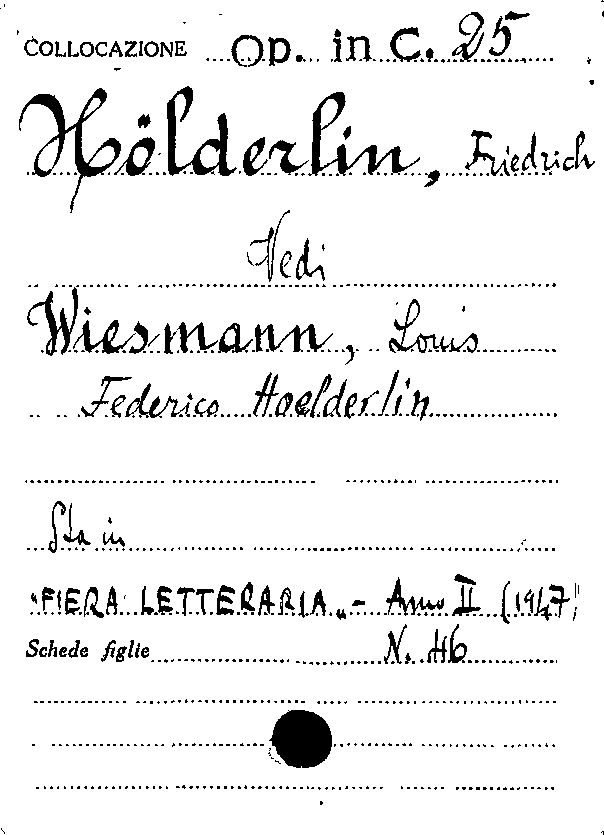 COLLOCAZIONE Op. in C. 25
Hölderlin, Friedrich
Vedi
Wiesmann, Louis
Federico Hoelderlin
Sta in
"FIERA LETTERARIA„ - Anno II (1947)
Schede figlie N. 46